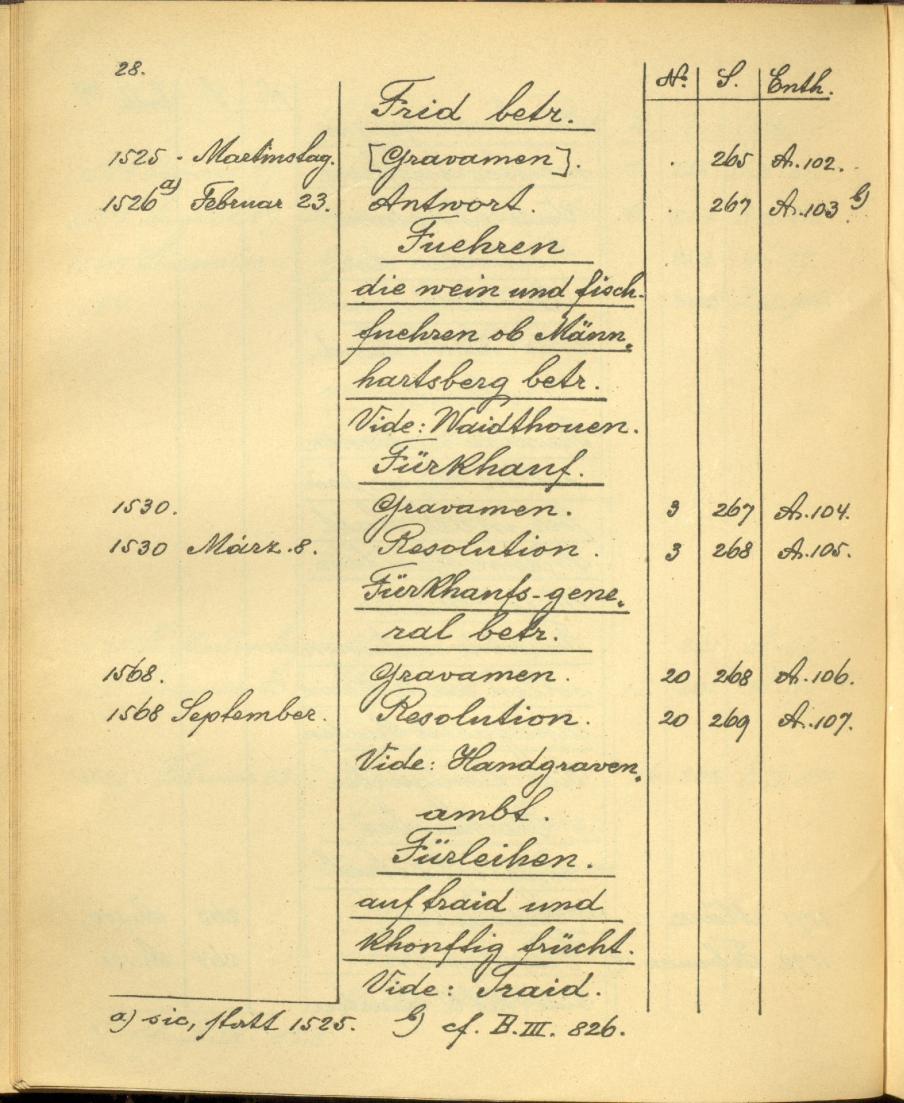 28.
N° S. Enth.
Frid betr.
1525 - Martinstag. [Gravamen]. . 265 A. 102.
1526 a) Februar 23. Antwort. . 267 A. 103 b)
Fuehren
die wein und fisch-
fuehren ob Männ„
hartsberg betr.
Vide: Waidthouen.
Fürkhauf.
1530. Gravamen. 3 267 A. 104.
1530 März 8. Resolution. 3 268 A. 105.
Fürkhaufs-gene„
ral betr.
1568. Gravamen. 20 268 A. 106.
1568 September. Resolution. 20 269 A. 107.
Vide: Handgraven„
ambt.
Fürleihen.
auf traid und
khonftig frücht.
Vide: Traid.
a) sic, statt 1525. b) cf. B.III. 826.